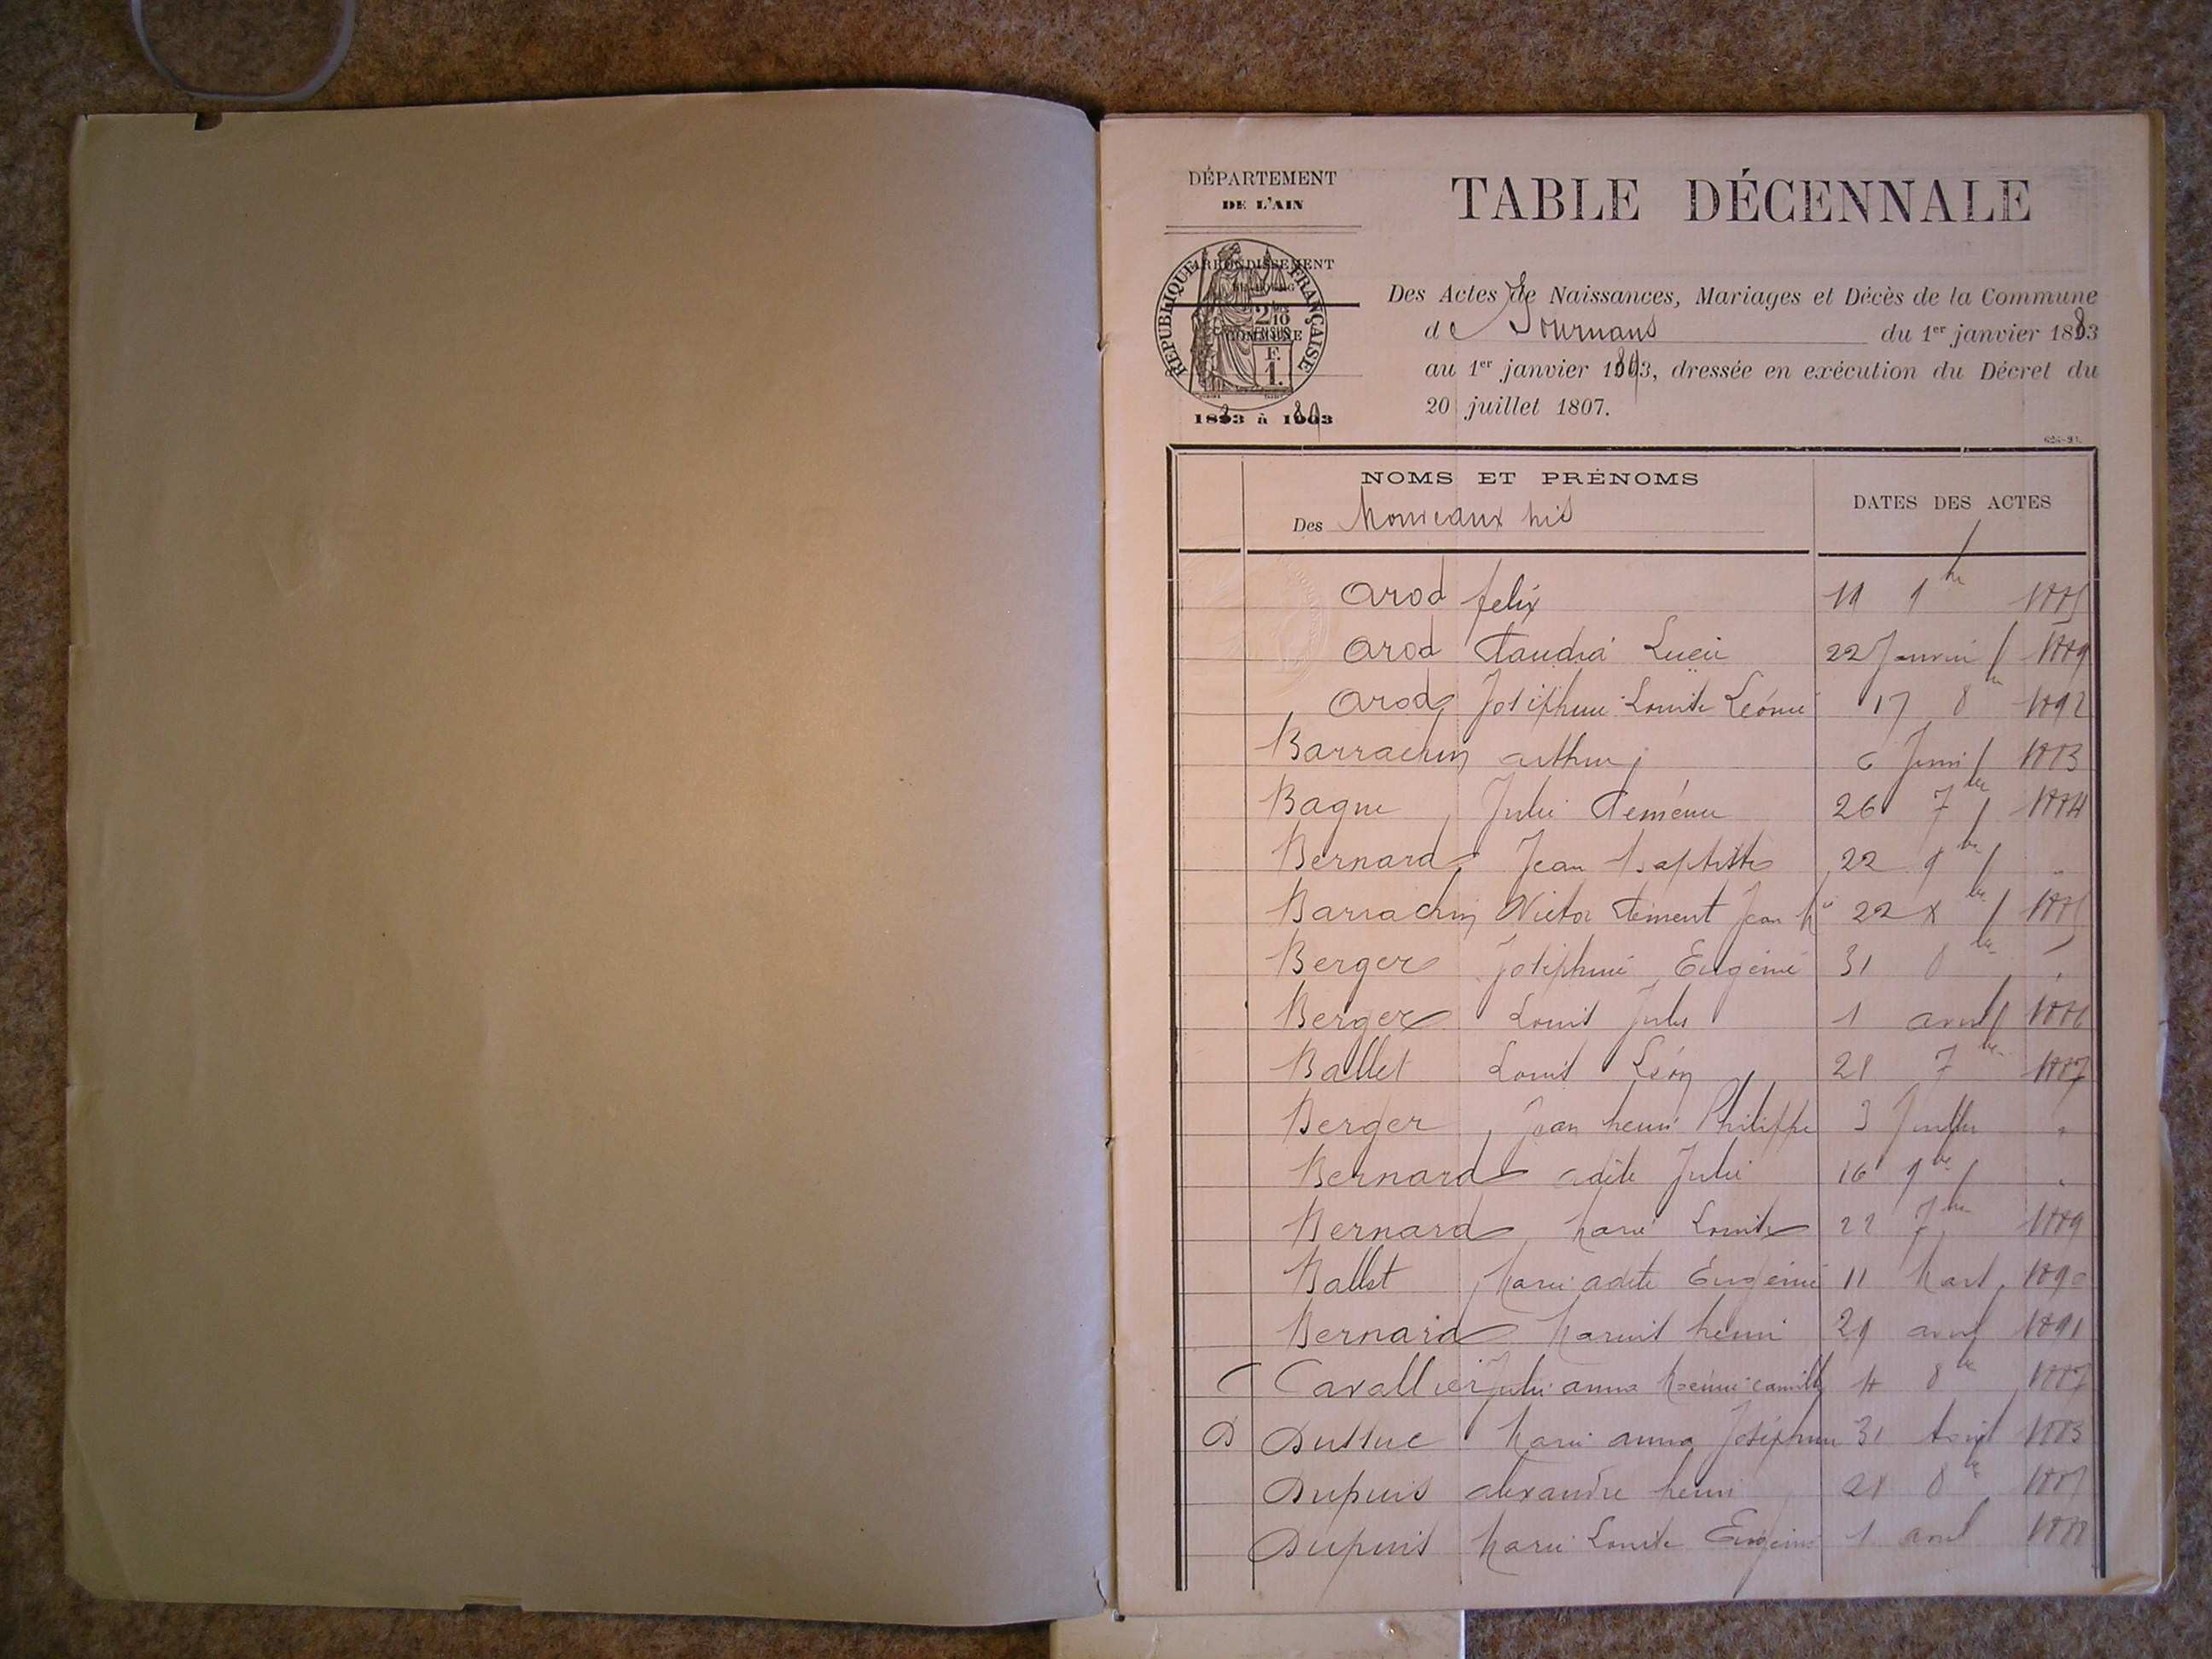 DÉPARTEMENT
DE L'AIN
TABLE DÉCENNALE
ARRONDISSEMENT
COMMUNE
RÉPUBLIQUE FRANÇAISE
F.
1.
1883 à 1893
Des Actes de Naissances, Mariages et Décès de la Commune
de Journans du 1er janvier 1883
au 1er janvier 1893, dressée en exécution du Décret du
20 juillet 1807.
NOMS ET PRÉNOMS
Des Nouveaux nés
DATES DES ACTES
Arod felix 11 9bre 1885
Arod Claudia Lucie 22 Janvier 1889
Arod Joséphine Louise Léonie 17 8bre 1892
Barrachin arthur 6 Juin 1883
Bagne Julie Clémence 26 7bre 1884
Bernard Jean Baptiste 22 9bre "
Barrachin Victor Clément Jean 22 Xbre 1885
Berger Joséphine Eugénie 31 8bre "
Berger Louis Jules 1 avril 1886
Ballet Louis Léon 28 7bre 1887
Berger Jean henri Philippe 3 Juillet "
Bernard adèle Julie 16 9bre "
Bernard Marie Louise 22 7bre 1889
Ballet Marie adèle Eugénie 11 Mars 1890
Bernard Marius henri 29 avril 1891
C Cavallier Julie anna camille 4 8bre 1887
D Dussuc Marie anna Joséphine 31 1883
Dupuis alexandre henri 28 8bre
Dupuis Marie Louise Eugénie 1 avril 1888